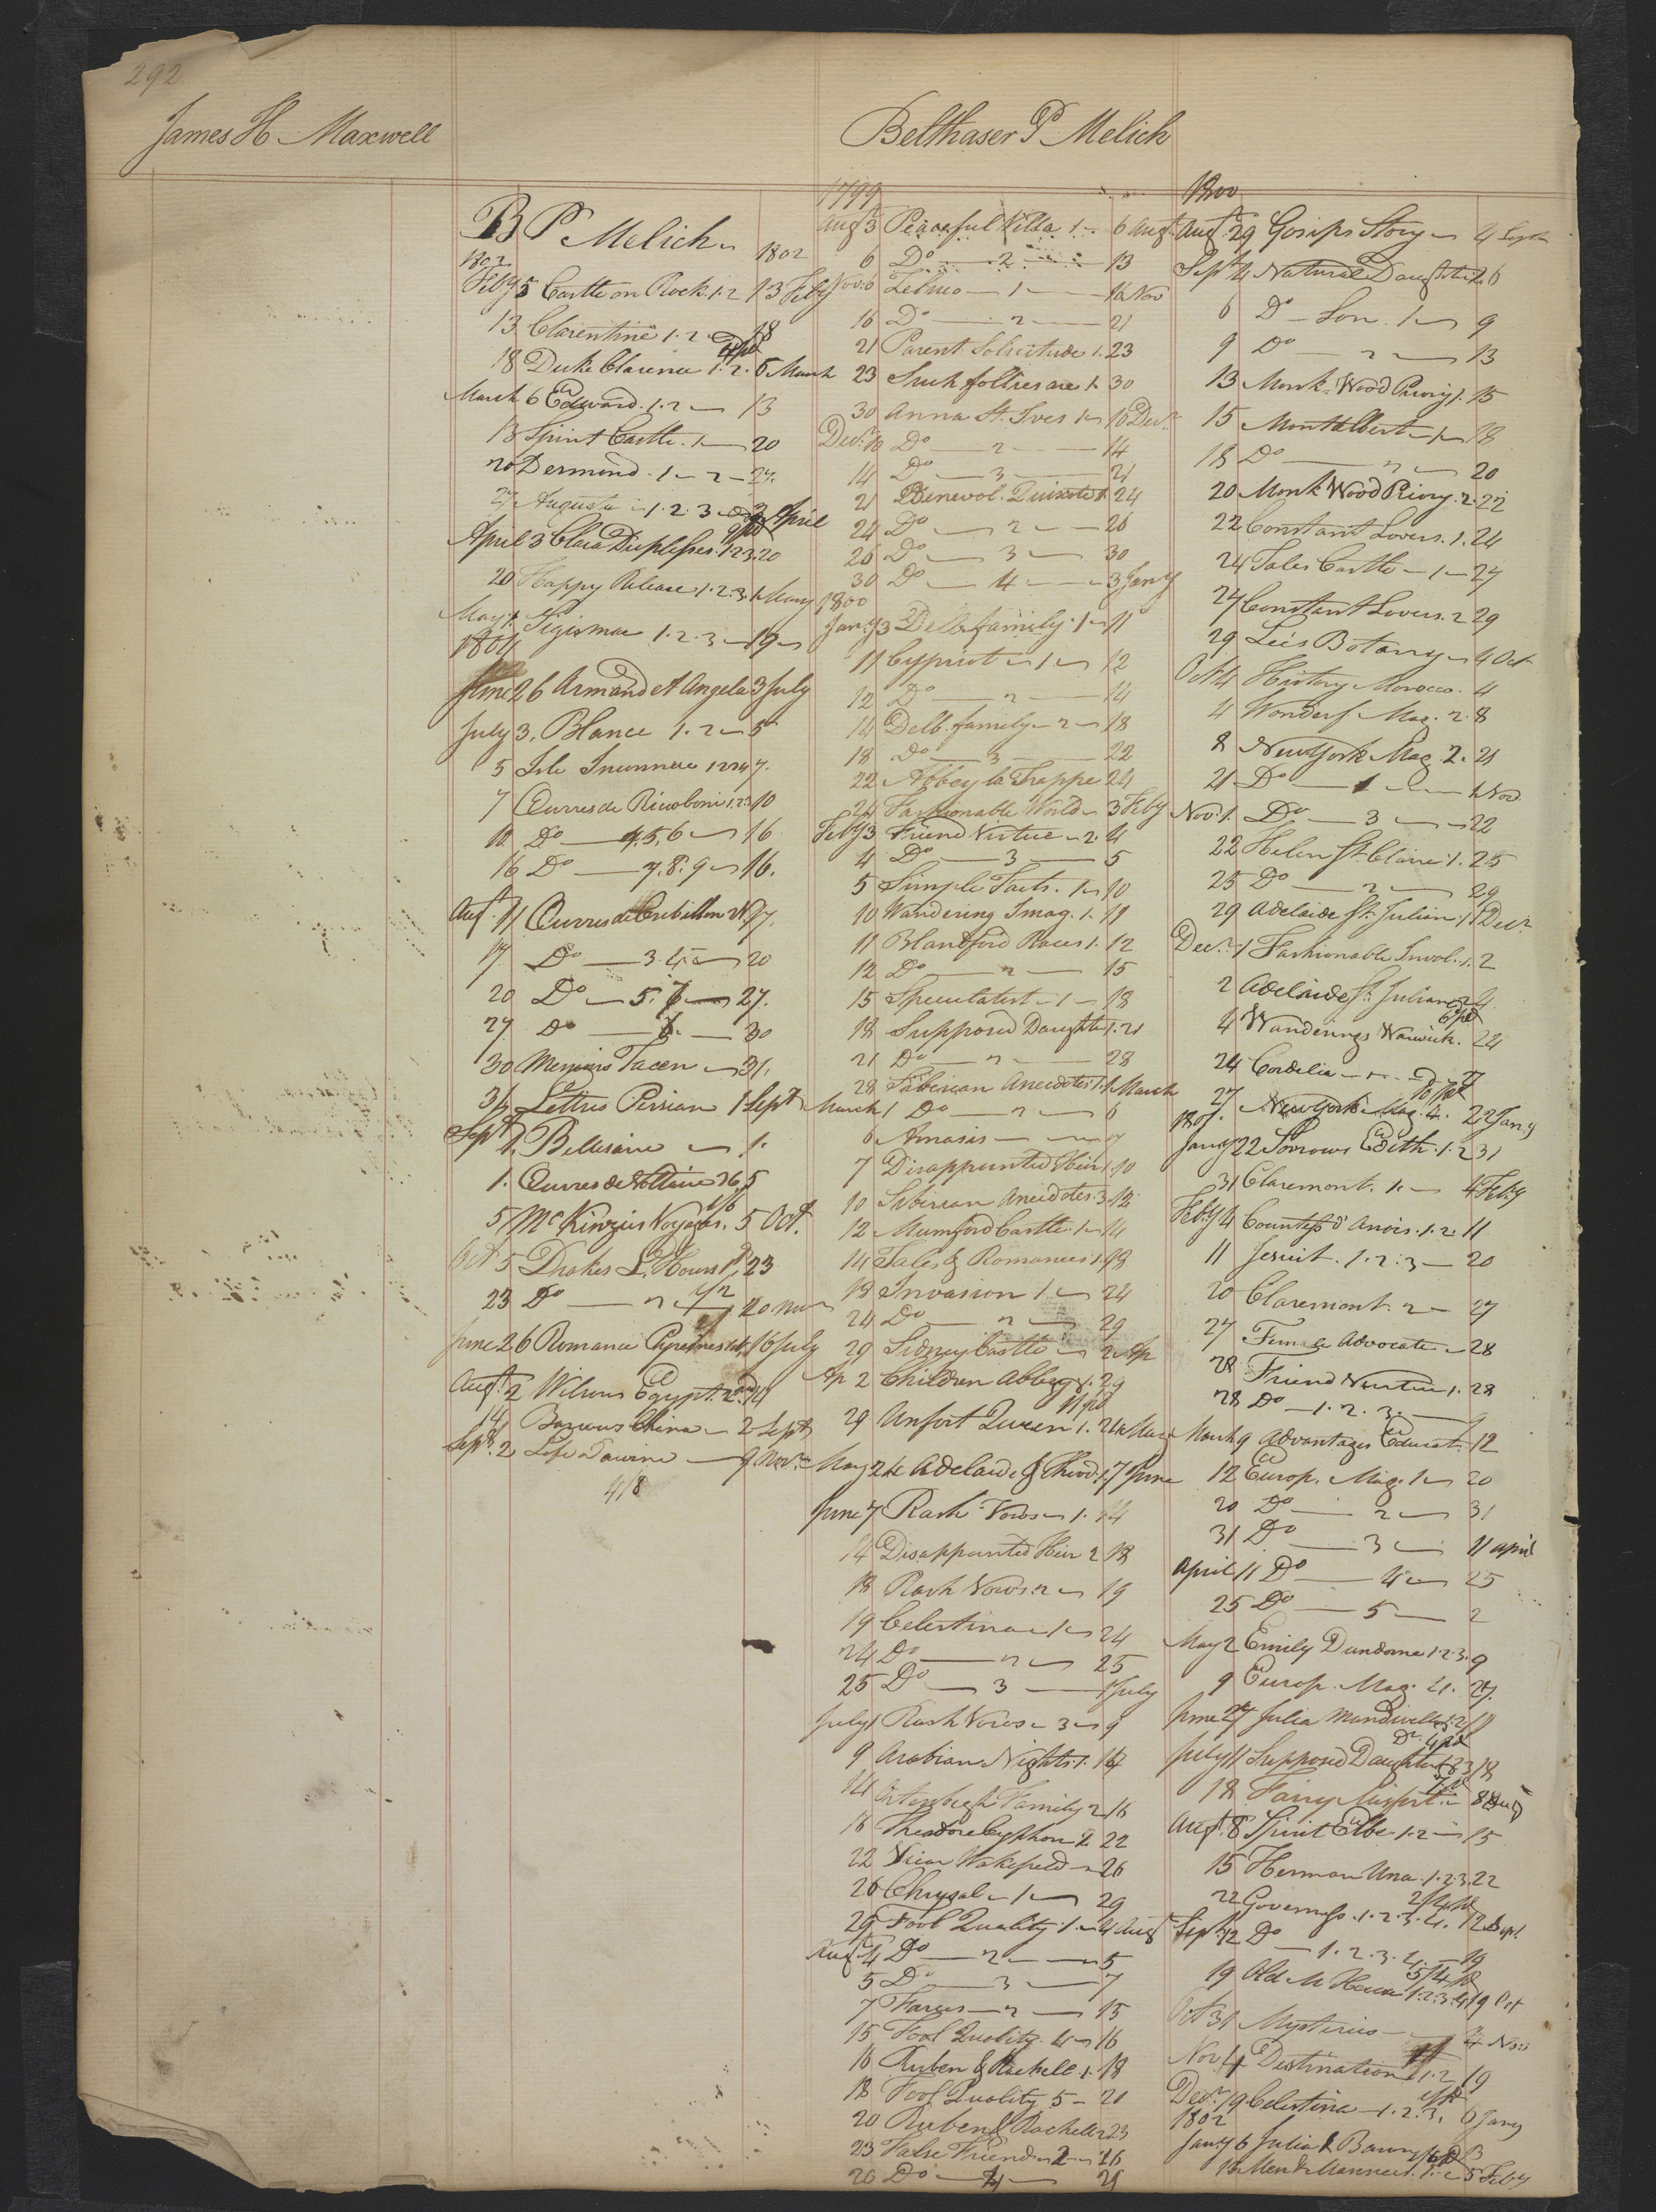 292
James H Maxwell
Belthaser P Melich
B P Melich
1802 1802
Feby 5 Castle on Rock 1.2 13 Feby
13 Clarentine 1.2 18
18 Duke Clarence 1.2. 5 March
March 6 Edward. 1.2 13
13 Spirit Castle. 1 20
20 Dermond. 1 2 27.
27 Augusta 1.2.3 3 April
April 3 Clara Duplessis. 1.2.3. 20
20 Happy Release 1.2.3. 1 May
May 1. Sigismar 1.2.3 19
1801
June 26 Armand et Angela 3 July
July 3. Blance 1.2 5
5 Isle Inconnue 1234 7.
7 Œuvres de Riccoboni 1.2.3 10
10 Do 4.5.6 16
16 Do 7.8.9 16.
Augt. 11 Œuvres de Crebillon 17.
17 Do 3.4 20
20 Do 5. 27.
27 Do 30
30 Memoirs Tacen 31.
31 Lettres Persian 1 Sept
Sept 1. Bellesaire 1.
1. Œuvres de Voltaire 36. 5
5 McKinzies Voyages. 5 Oct.
Oct 5 Drakes L. Hours 1 23
23 Do 2 20 Nov
June 26 Romance Pyrennes 16 July
Augt 2 Wilsons Egypt. 14
14 Barrows China 2 Sept
Sept. 2 Life Darwin 9. Nov.
4/8
1799
Augt 3 Peaceful Villa 1 6 Augt
6 Do 2 13
Nov. 6 Zeluco 1 16 Nov
16 Do 2 21
21 Parent. Solicitude 1. 23
23 Such follies are 1 30
30 Anna St. Ives 1 10 Decr.
Decr. 10 Do 2 14
14 Do 3 21
21 Benevol. Quixote 1 24
24 Do 2 26
26 Do 3 30
30 Do 4 3 Jany
1800
Jany 3 Delb. family. 1 11
11 Cypriot 1 12
12 Do 2 14
14 Delb. family 2 18
18 Do 3 22
22 Abbey la Trappe 24
24 Fashionable World 3 Feby
Feby 3 Friend Virtue 2. 4
4 Do 3 5
5 Simple Facts. 1 10
10 Wandering Imag. 1. 11
11 Blandford Races 1. 12
12 Do 2 15
15 Speculatist 1 18
18 Supposed Daughter 1. 21
21 Do 2 28
28 Siberian Anecdotes 1. 1 March
March 1 Do 2 6
6 Amasis 7
7 Disappointed Heir 1 10
10 Siberian Anecdotes. 3 12
12 Mumford Castle. 1 14
14 Tales & Romances 1. 18
18 Invasion 1. 24
24 Do 2 29
29 Sidney Castle 2 Ap
Ap 2 Children Abbey 1. 29
29 Unfort Queen 1. 24 May
May 24 Adelaide & Theod. 1. 7 June
June 7 Rash Vows 1. 14
14 Disappointed Heir 2 18
18 Rash Vows. 2 19
19 Celestina 1 24
24 Do 2 25
25 Do 3 1 July
July 1 Rash Vows 3 9
9 Arabian Nights. 1. 14
14 Ortenbergh Family 2 16
16 Theodore Cyphon 2 22
22 Vicar Wakefield 26
26 Chrysal 1 29
29 Fool Quality. 1 4 Aug
Augt 4 Do 2 5
5 Do 3 7
7 Farces 2 15
15 Fool Quality. 4 16
16 Ruben & Rachell 1. 18
18 Fool Quality 5 20
20 Ruben & Rachell 2 23
23 False Friend 2 26
26 Do 4 29
1800
Augt. 29 Gosips Story 4 Sept
Sept 4 Natural Daughter 2. 6
6 Do Son. 1 9
9 Do 2 13
13 Monk Wood Priory 1. 15
15 Montalbert 1 18
18 Do 2 20
20 Monk Wood Priory. 2. 22
22 Constant Lovers. 1. 24
24 Tales Castle 1 27
27 Constant Lovers. 2 29
29 Lee's Botany 4 Oct
Oct 4 History Morocco. 4
4 Wonderf. Mag. 2. 8
8 New York Mag. 2. 21
21 Do 1 1 Nov.
Nov. 1. Do 3 22
22 Helen St. Claire 1. 25
25 Do 2 29
29 Adelaide St. Julian. 1 1 Decr.
Decr. 1 Fashionable Invol. 1. 2
2 Adelaide St. Julian 2 4
4 Wanderings Warwick. 24
24 Cordelia 27
27 New York Mag. 4. 22 Jany
1801.
Jany 22 Sorrows Edith. 1.2 31
31 Claremont. 1. 4 Feby
Feby 4 Countess d'Anois. 1.2. 11
11 Jesuit. 1.2.3 20
20 Claremont. 2 27
27 Female Advocate 28
28 Friend Virtue 1. 28
28 Do 1.2.3. 9
March 9 Advantages Educat. 12
12 Europ. Mag. 1 20
20 Do 2 31
31 Do 3 11 april
April 11 Do 4 25
25 Do 5 2
May 2 Emily Dundorne 1.2.3. 9
9 Europ. Mag. 4. 27.
June 27 Julia Mandiville 1.2 11
July 11 Supposed Daughter 1.2.3 18
18 Fairy 8 Aug
Augt. 8 Spirit Elbe. 1.2 15
15 Herman Una. 1.2.3. 22
22 Governess. 1.2.3.4. 12 Sept
Sept. 12 Do 1.2.3.4. 19
19 Old M House 1.2.3.4 19 Oct
Oct 31 Mysteries 4 Nov
Nov. 4 Destination 1.2 19
Decr. 19 Celestina 1.2.3. 6 Jany
1802
Jany 6 Julia & Baron 13
13 Men & Manners. 1. 5 Feby